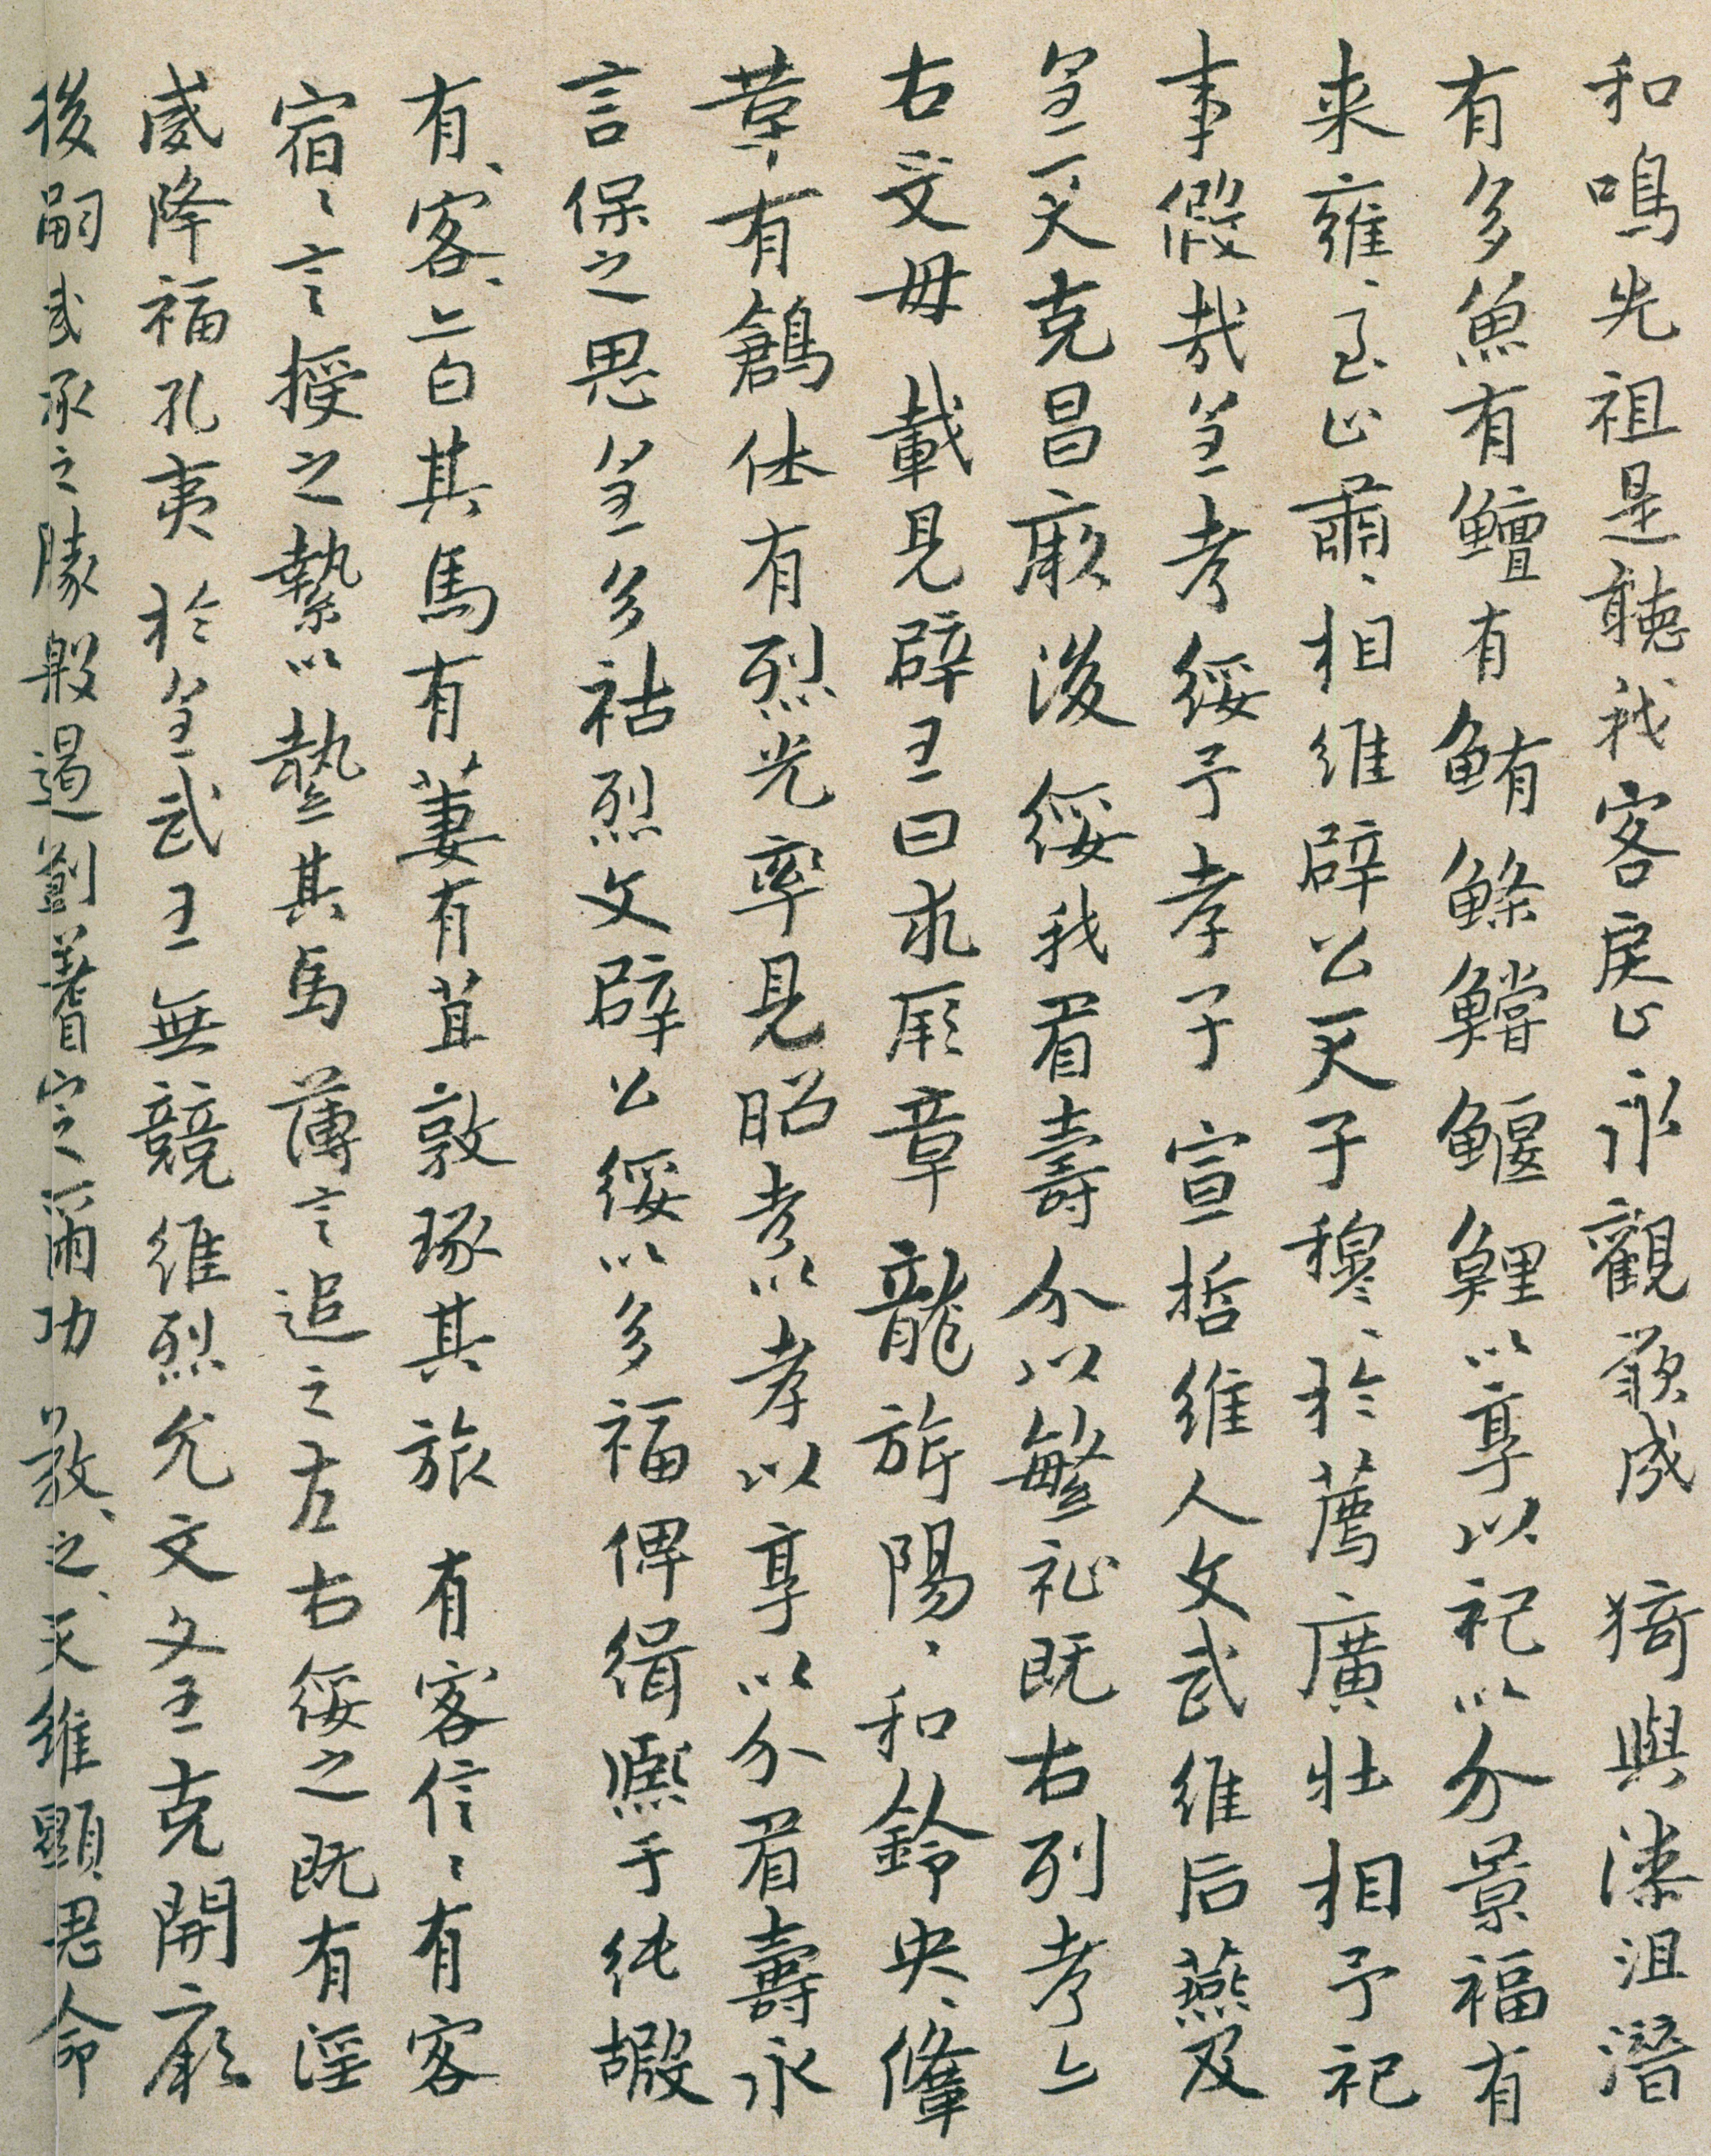 和鳴先祖是聽我客戾止永觀厥成 猗與漆沮潛
有多魚有鱣有鮪鰷鱨鰋鯉以享以祀以介景福有
来雍〻至止肅〻相維辟公天子穆〻於薦廣牡相予祀
事假哉皇考綏予孝子 宣哲維人文武維后燕及
皇天克昌厥後綏我眉壽介以繁祉既右列考亠
右文母 載見辟王曰求厥章龍旂陽〻和鈴央〻鞗
革有鶬休有烈光率見昭考以孝以享以介眉壽永
言保之思皇多祜烈文辟公綏以多福俾緝熙于純嘏
有〻客〻亠白其馬有萋有苴敦琢其旅 有客信〻有客
宿〻言授之縶以縶其馬 薄言追之左右綏之既有淫
威降福孔夷 於皇武王無競維烈允文文王克開厥
後嗣武承之勝殷遏劉耆定爾功 敬〻之〻天維顯思命